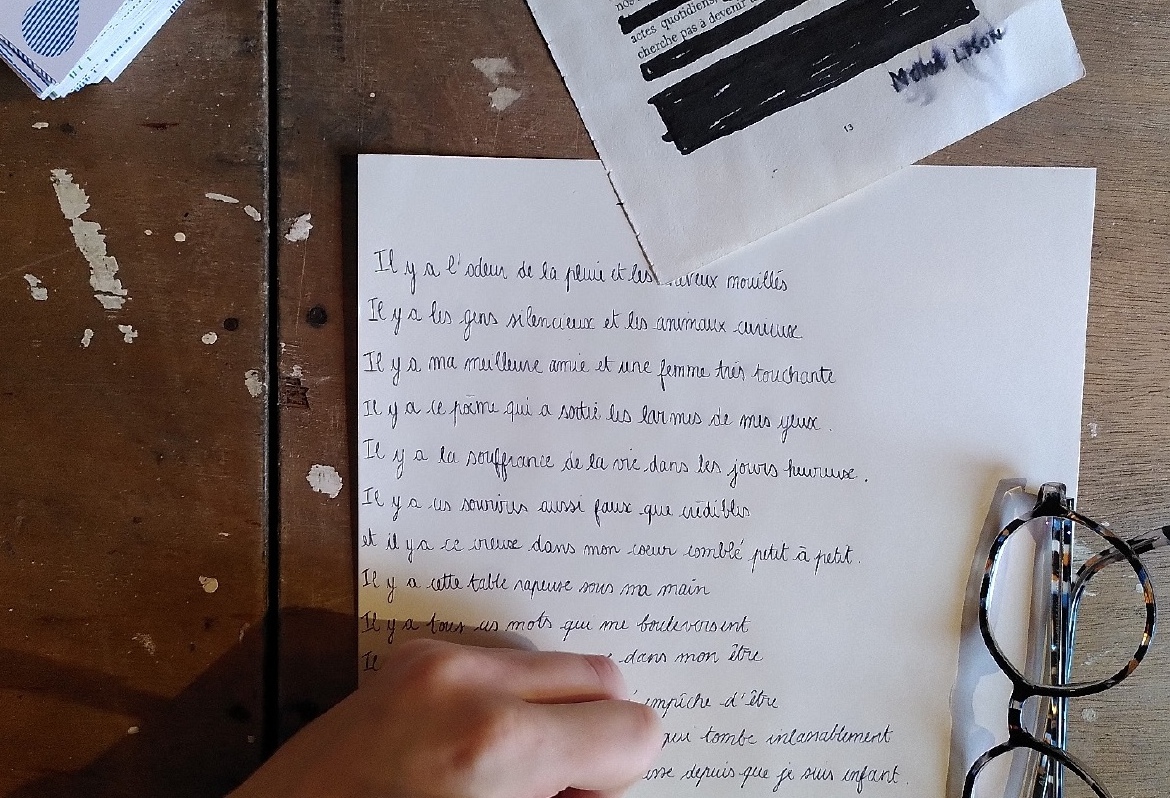 actes quotidiens.
cherche pas à devenir
13
Il y a l'odeur de la pluie et les cheveux mouillés
Il y a les gens silencieux et les animaux curieux
Il y a ma meilleure amie et une femme très touchante
Il y a ce poème qui a sorti les larmes de mes yeux.
Il y a la souffrance de la vie dans les jours heureux.
Il y a ces sourires aussi faux que crédibles
et il y a ce creux dans mon coeur comblé petit à petit.
Il y a cette table rapeuse sous ma main
Il y a tous ces mots qui me bouleversent
Il dans mon être
empêche d'être
qui tombe inlassablement
depuis que je suis enfant.